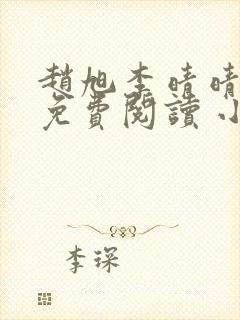 趙旭李晴晴
免費閱讀小
李琛